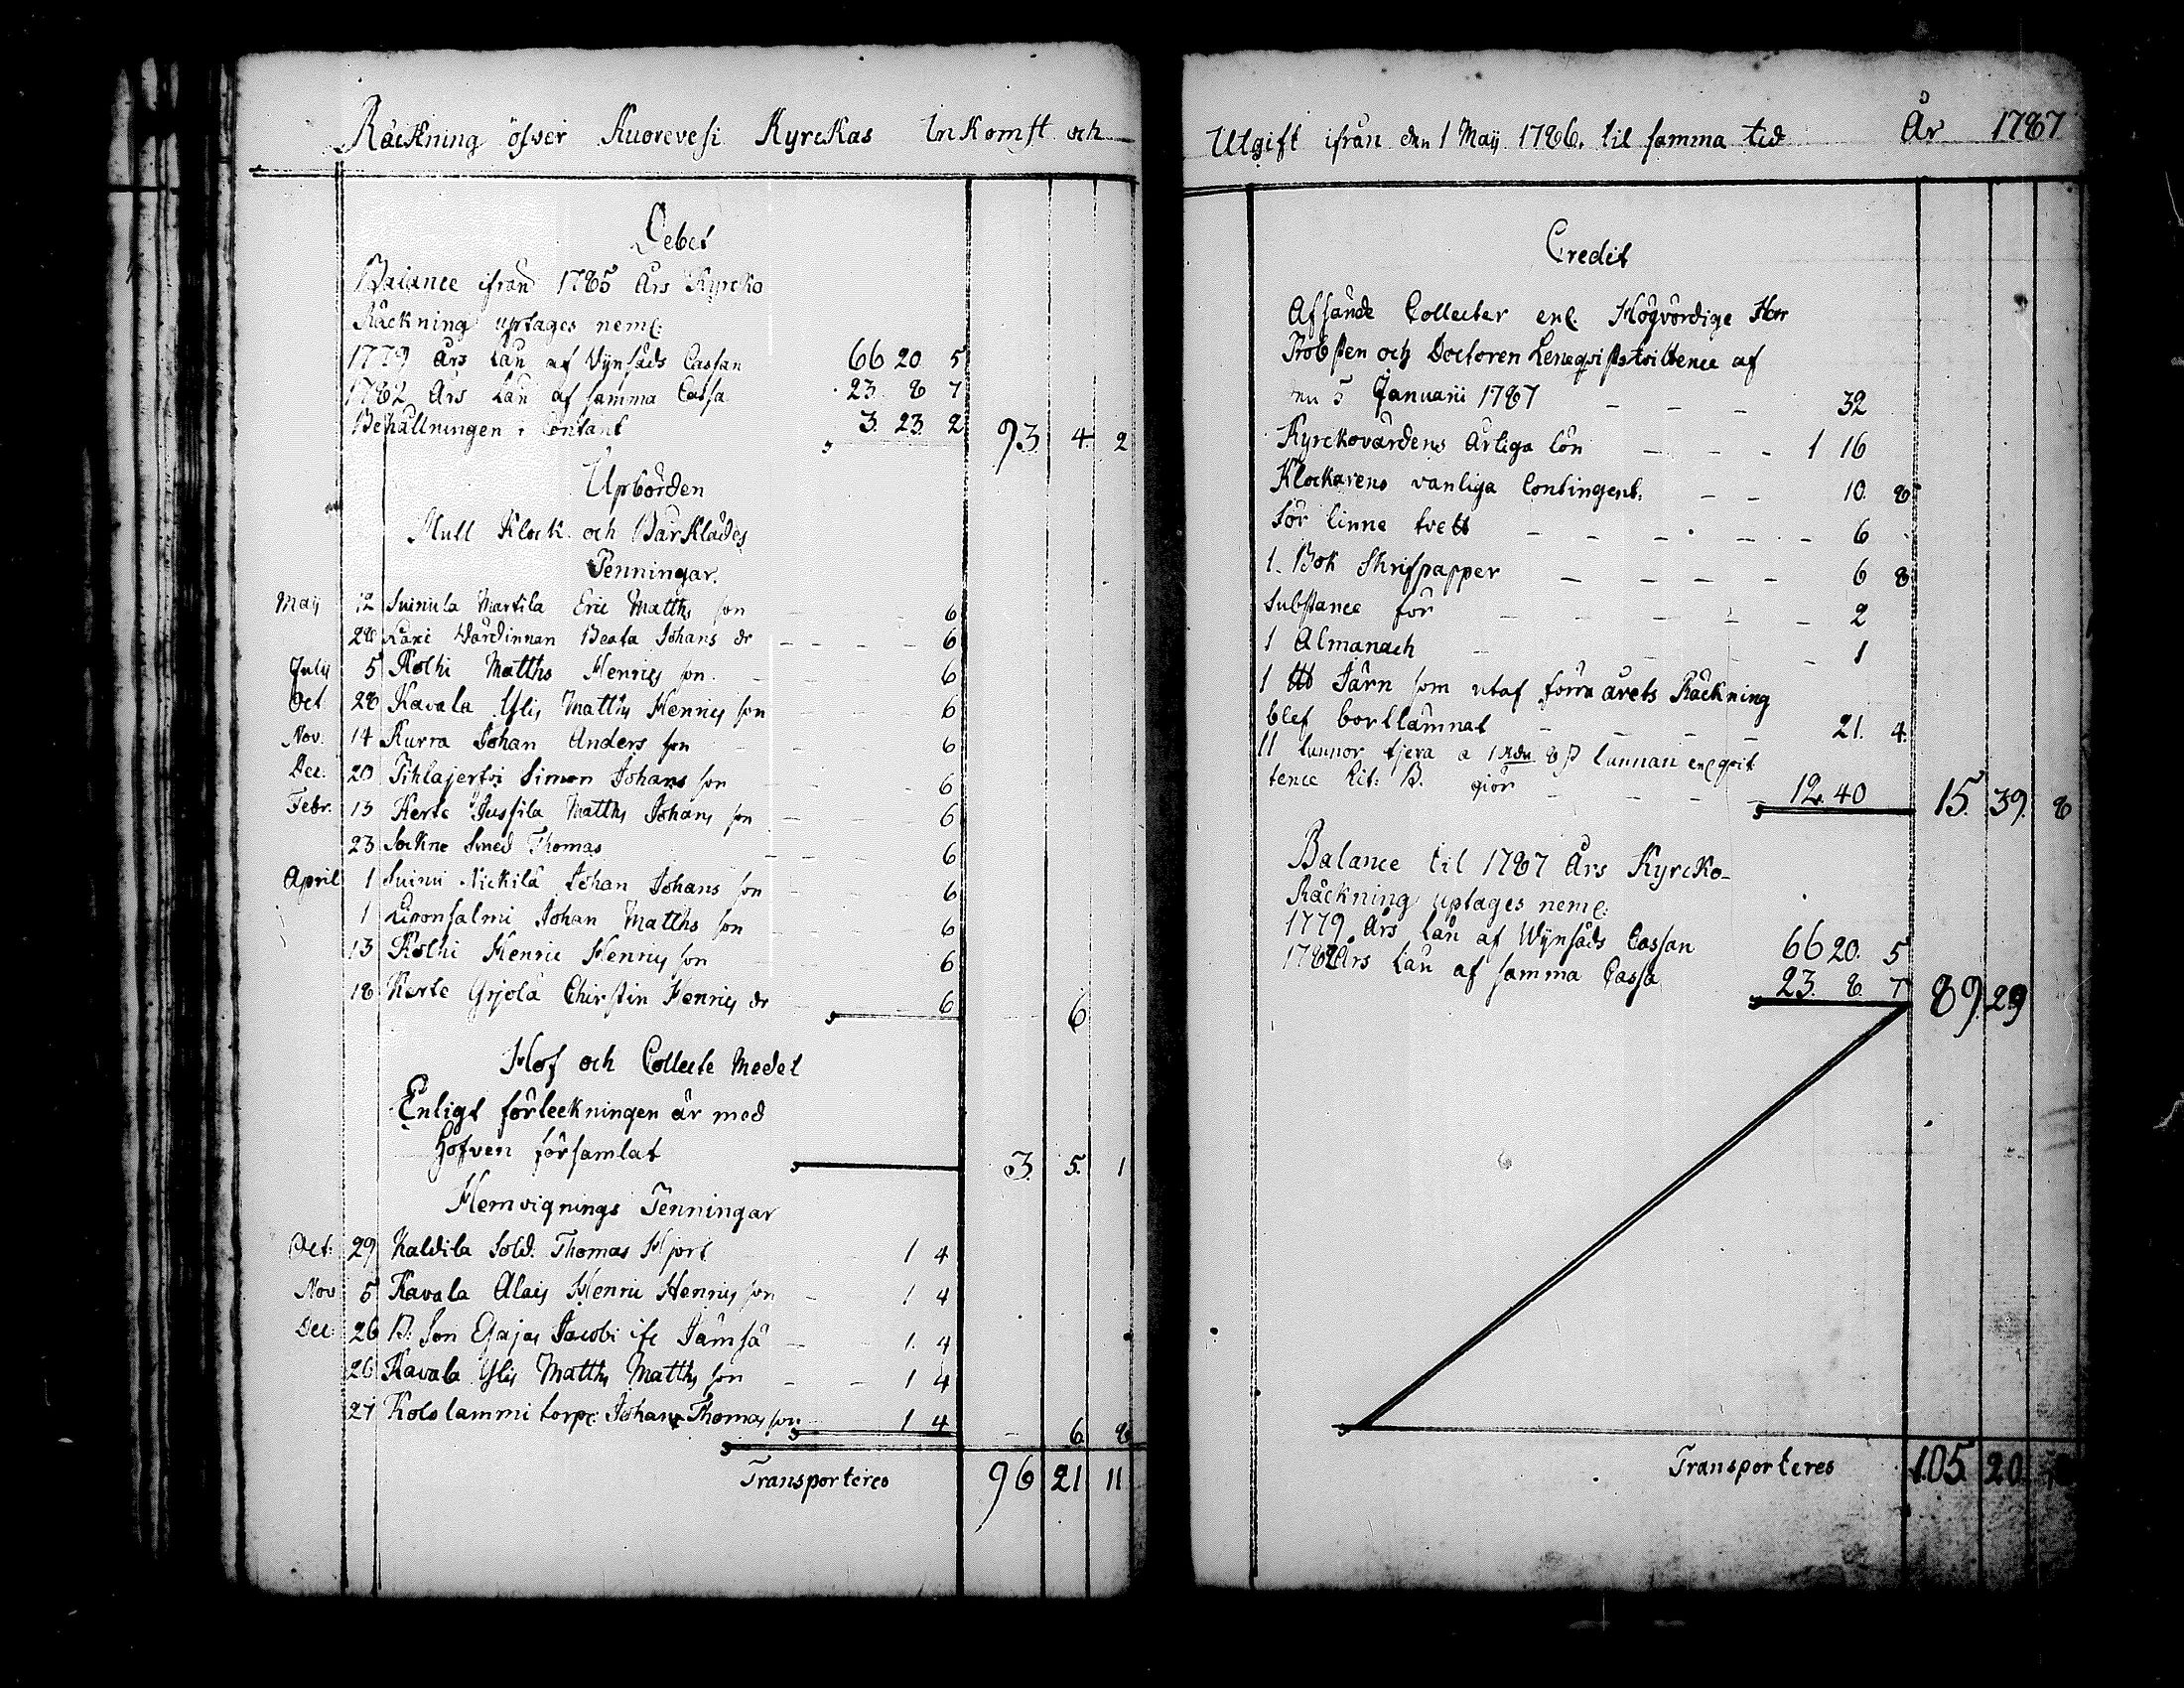 Räckning öfver Kuorevesi Kyrckas Inkomst och
Debet
Balance ifrån 1785 Års Kyrcko
Räckning uptages neml:
1779 Års Lån af Wynfåds Cassan 66 20 5
1782 Års Lån af samma Cassa 23. 8 7
Behållningen i Contant 3. 23. 2 93. 4. 2
Upbörden
Mull Klock och Bårklädes
Penningar.
Maij 12 Suinula Marttila Eric Matths son 6
28 Värdinnan Beata Johans dr 6
July 5 Kolhi Matths Henrics son 6
Oct 28 Kavala Ylis Matths Henrics son 6
Nov. 14 Kurra Johan Anders son 6
Dec. 20 Pihlajerfvi Simon Johans son 6
Febr. 13 Kerte Jussila Matths Johans son 6
23 Sockne Smed Thomas 6
April 1 Suinu Nickilä Johan Johans son 6
1 Leponsalmi Johan Matths son 6
13 Kolhi Henric Henrics son 6
18 Kerte Yrjölä Chirstin Henrics dr 6 6
Hof och Collecte Medel
Enligt förteckningen är med
Hofven församlat 3. 5. 1
Hemvignings Penningar
Oct: 29 Kaldila Sold. Thomas Hjort 1 4
Nov 5 Kavala Alais Henric Henrics son 1 4
Dec: 26 B. Son Esajas Jacobi ifr Jämsä 1. 4
26 Kavala Ylis Matths Matths son 1 4
27 Kololammi torp: Johan Thomas son 1 4 6 8
Transporteres 96 21 11
Utgift ifrån den 1 Maij 1786. til samma tid År 1787
Credit
Afsände Collecter enl. Högvördige Herr
Probsten och Doctoren Lenqvists qvittence af
den 5 Januarii 1787 32
Kyrckovärdens Årliga lön 1 16
Klockarens vanliga Contingent. 10. 8
för linne tvett 6
1. Bok Skrifpapper 6 8
Substance för 2
1 Almanach 1
1 ℔ Järn som utaf förra årets Räckning
blef bortlämnat 21. 4.
11 tunnor tjera a 1 Rdr 8 ß tunnan enl qvit
tence Lit: B. giör 12. 40 15. 39. 8
Balance til 1787 Års Kyrcko-
Räckning uptages neml:
1779 Års Lån af Wynfåds Cassan 66 20. 5
1782 Års Lån af samma Cassa 23. 8. 7 89. 29
Transporteres 105. 20